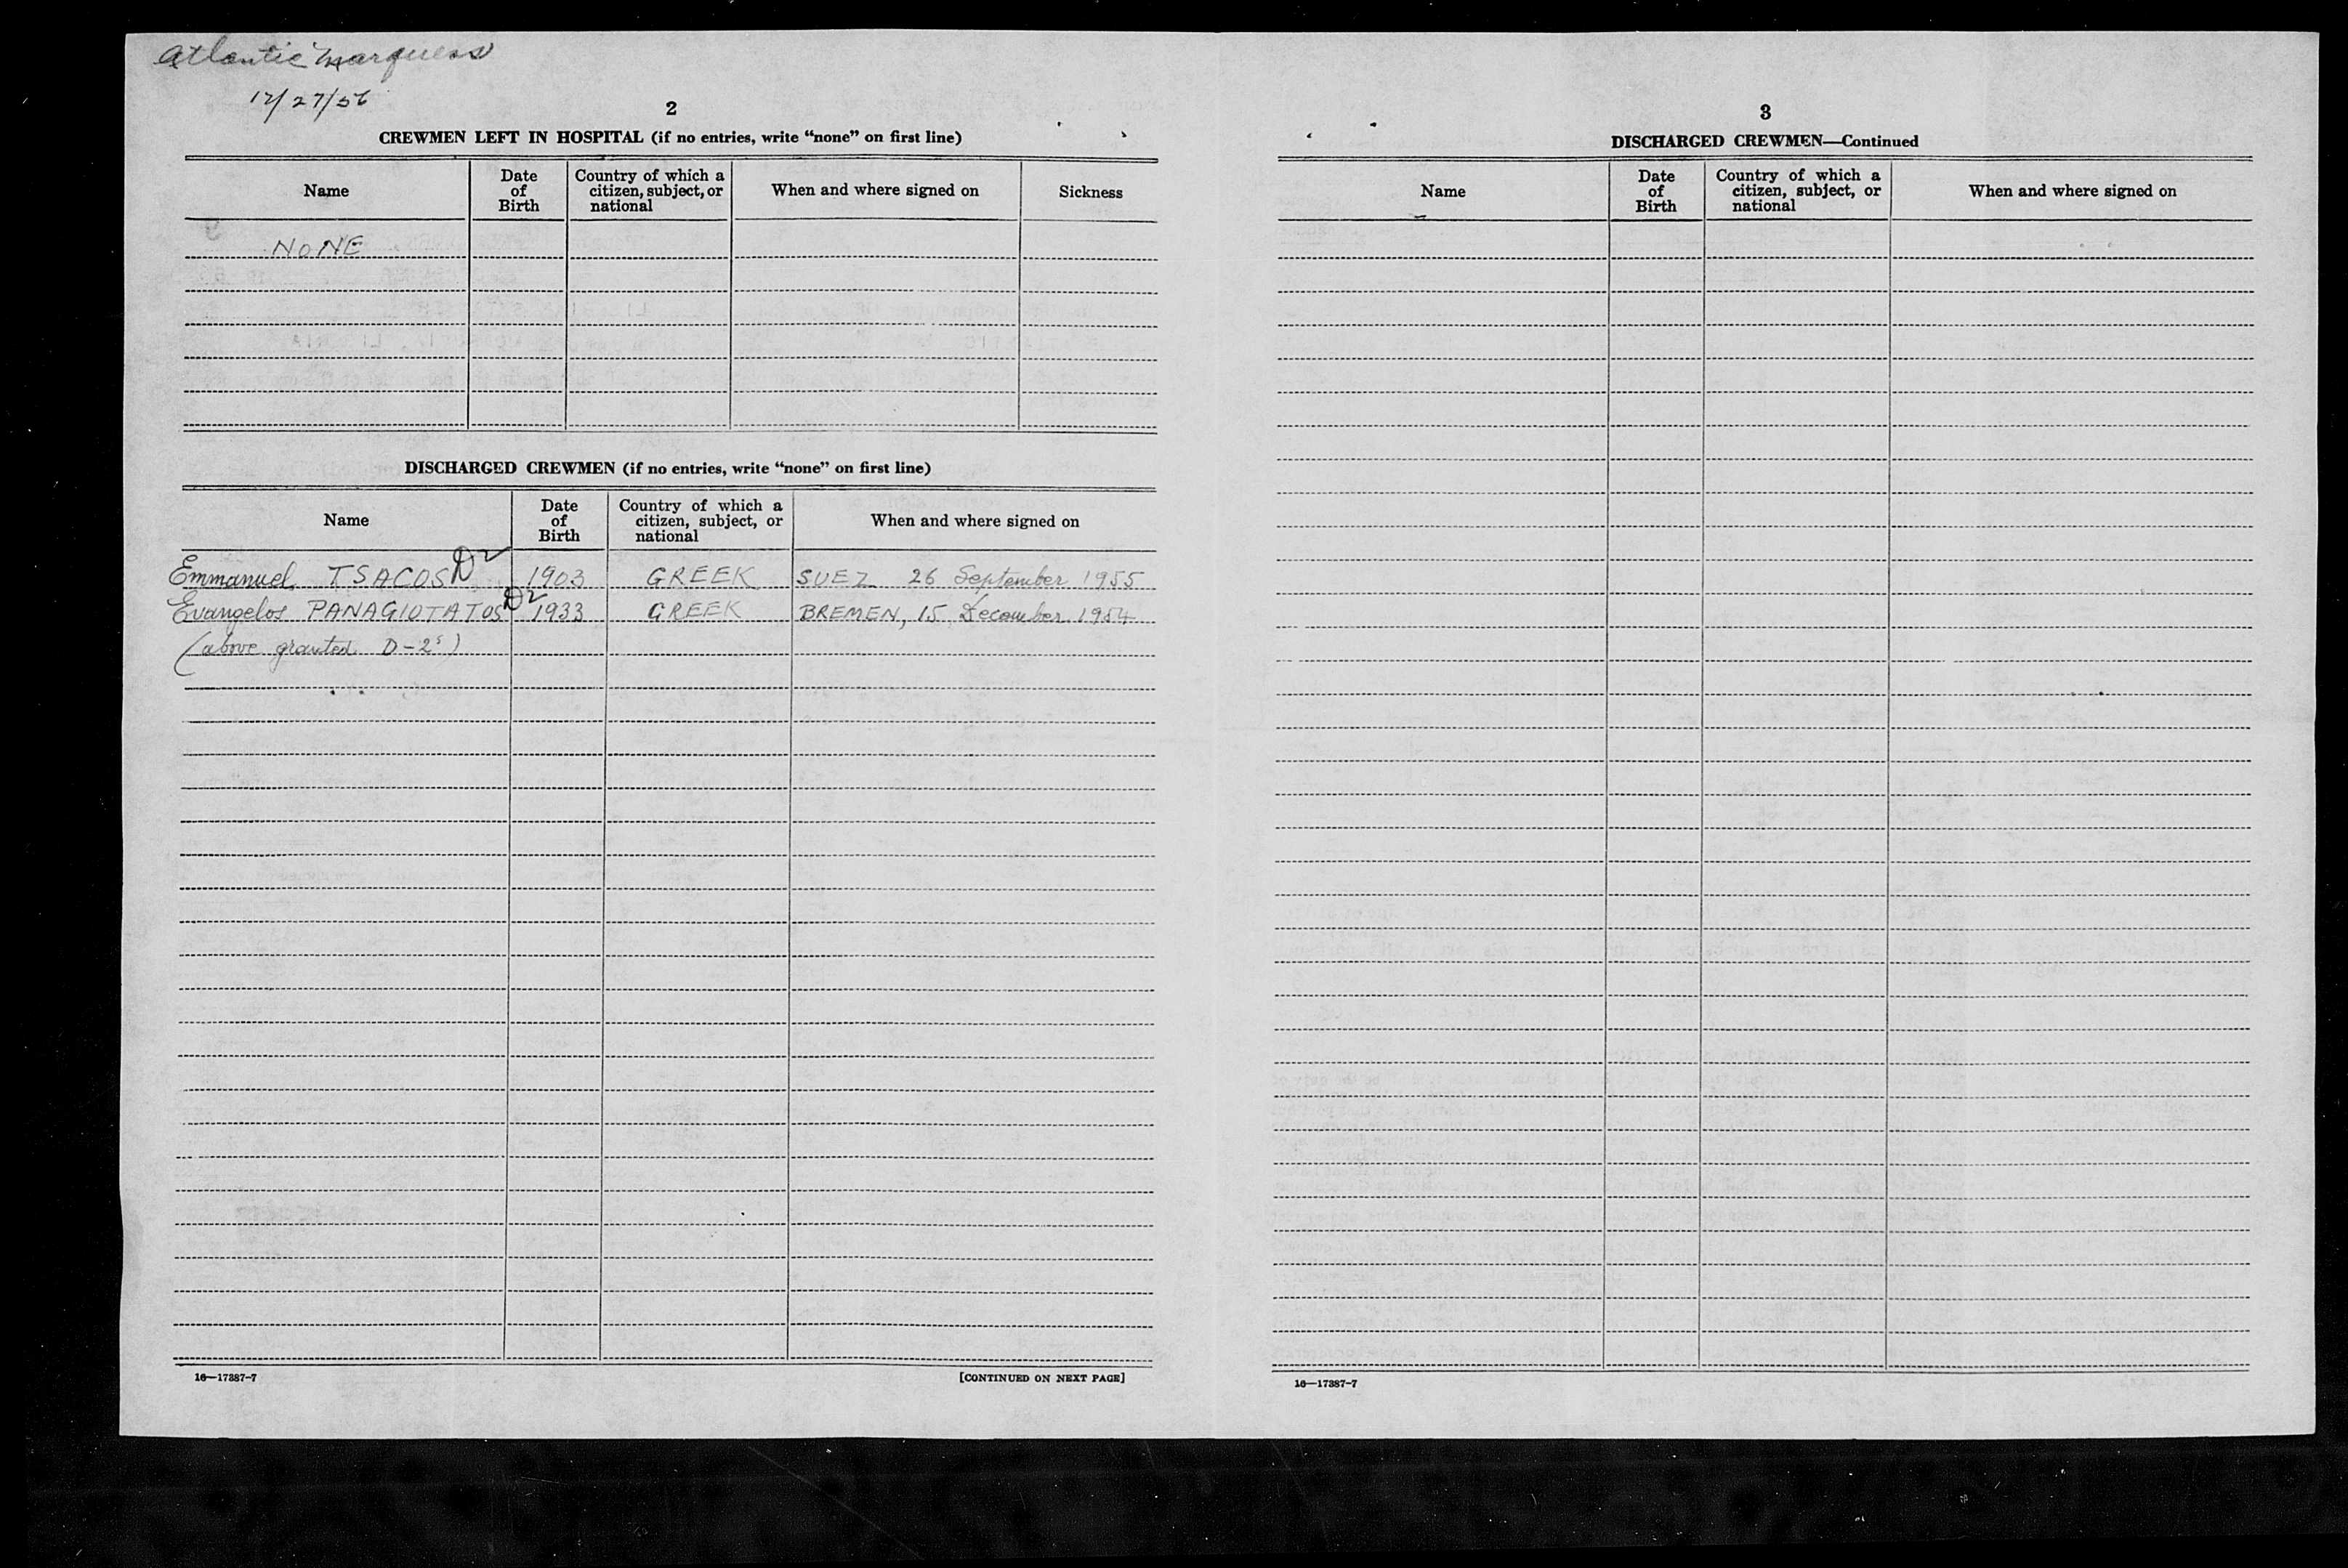 Atlantic Marquess
12/27/56
2
CREWMEN LEFT IN HOSPITAL (if no entries, write “none” on first line)
Name
Date of Birth
Country of which a citizen, subject, or national
When and where signed on
Sickness
NONE
DISCHARGED CREWMEN (if no entries, write “none” on first line)
Name
Date of Birth
Country of which a citizen, subject, or national
When and where signed on
Emmanuel TSACOS D2 1903 GREEK SUEZ 26 September 1955
Evangelos PANAGIOTATOS D2 1933 GREEK BREMEN, 15 December 1954
(above granted D-2s)
16—17387-7
[CONTINUED ON NEXT PAGE]
3
DISCHARGED CREWMEN—Continued
Name
Date of Birth
Country of which a citizen, subject, or national
When and where signed on
16—17387-7